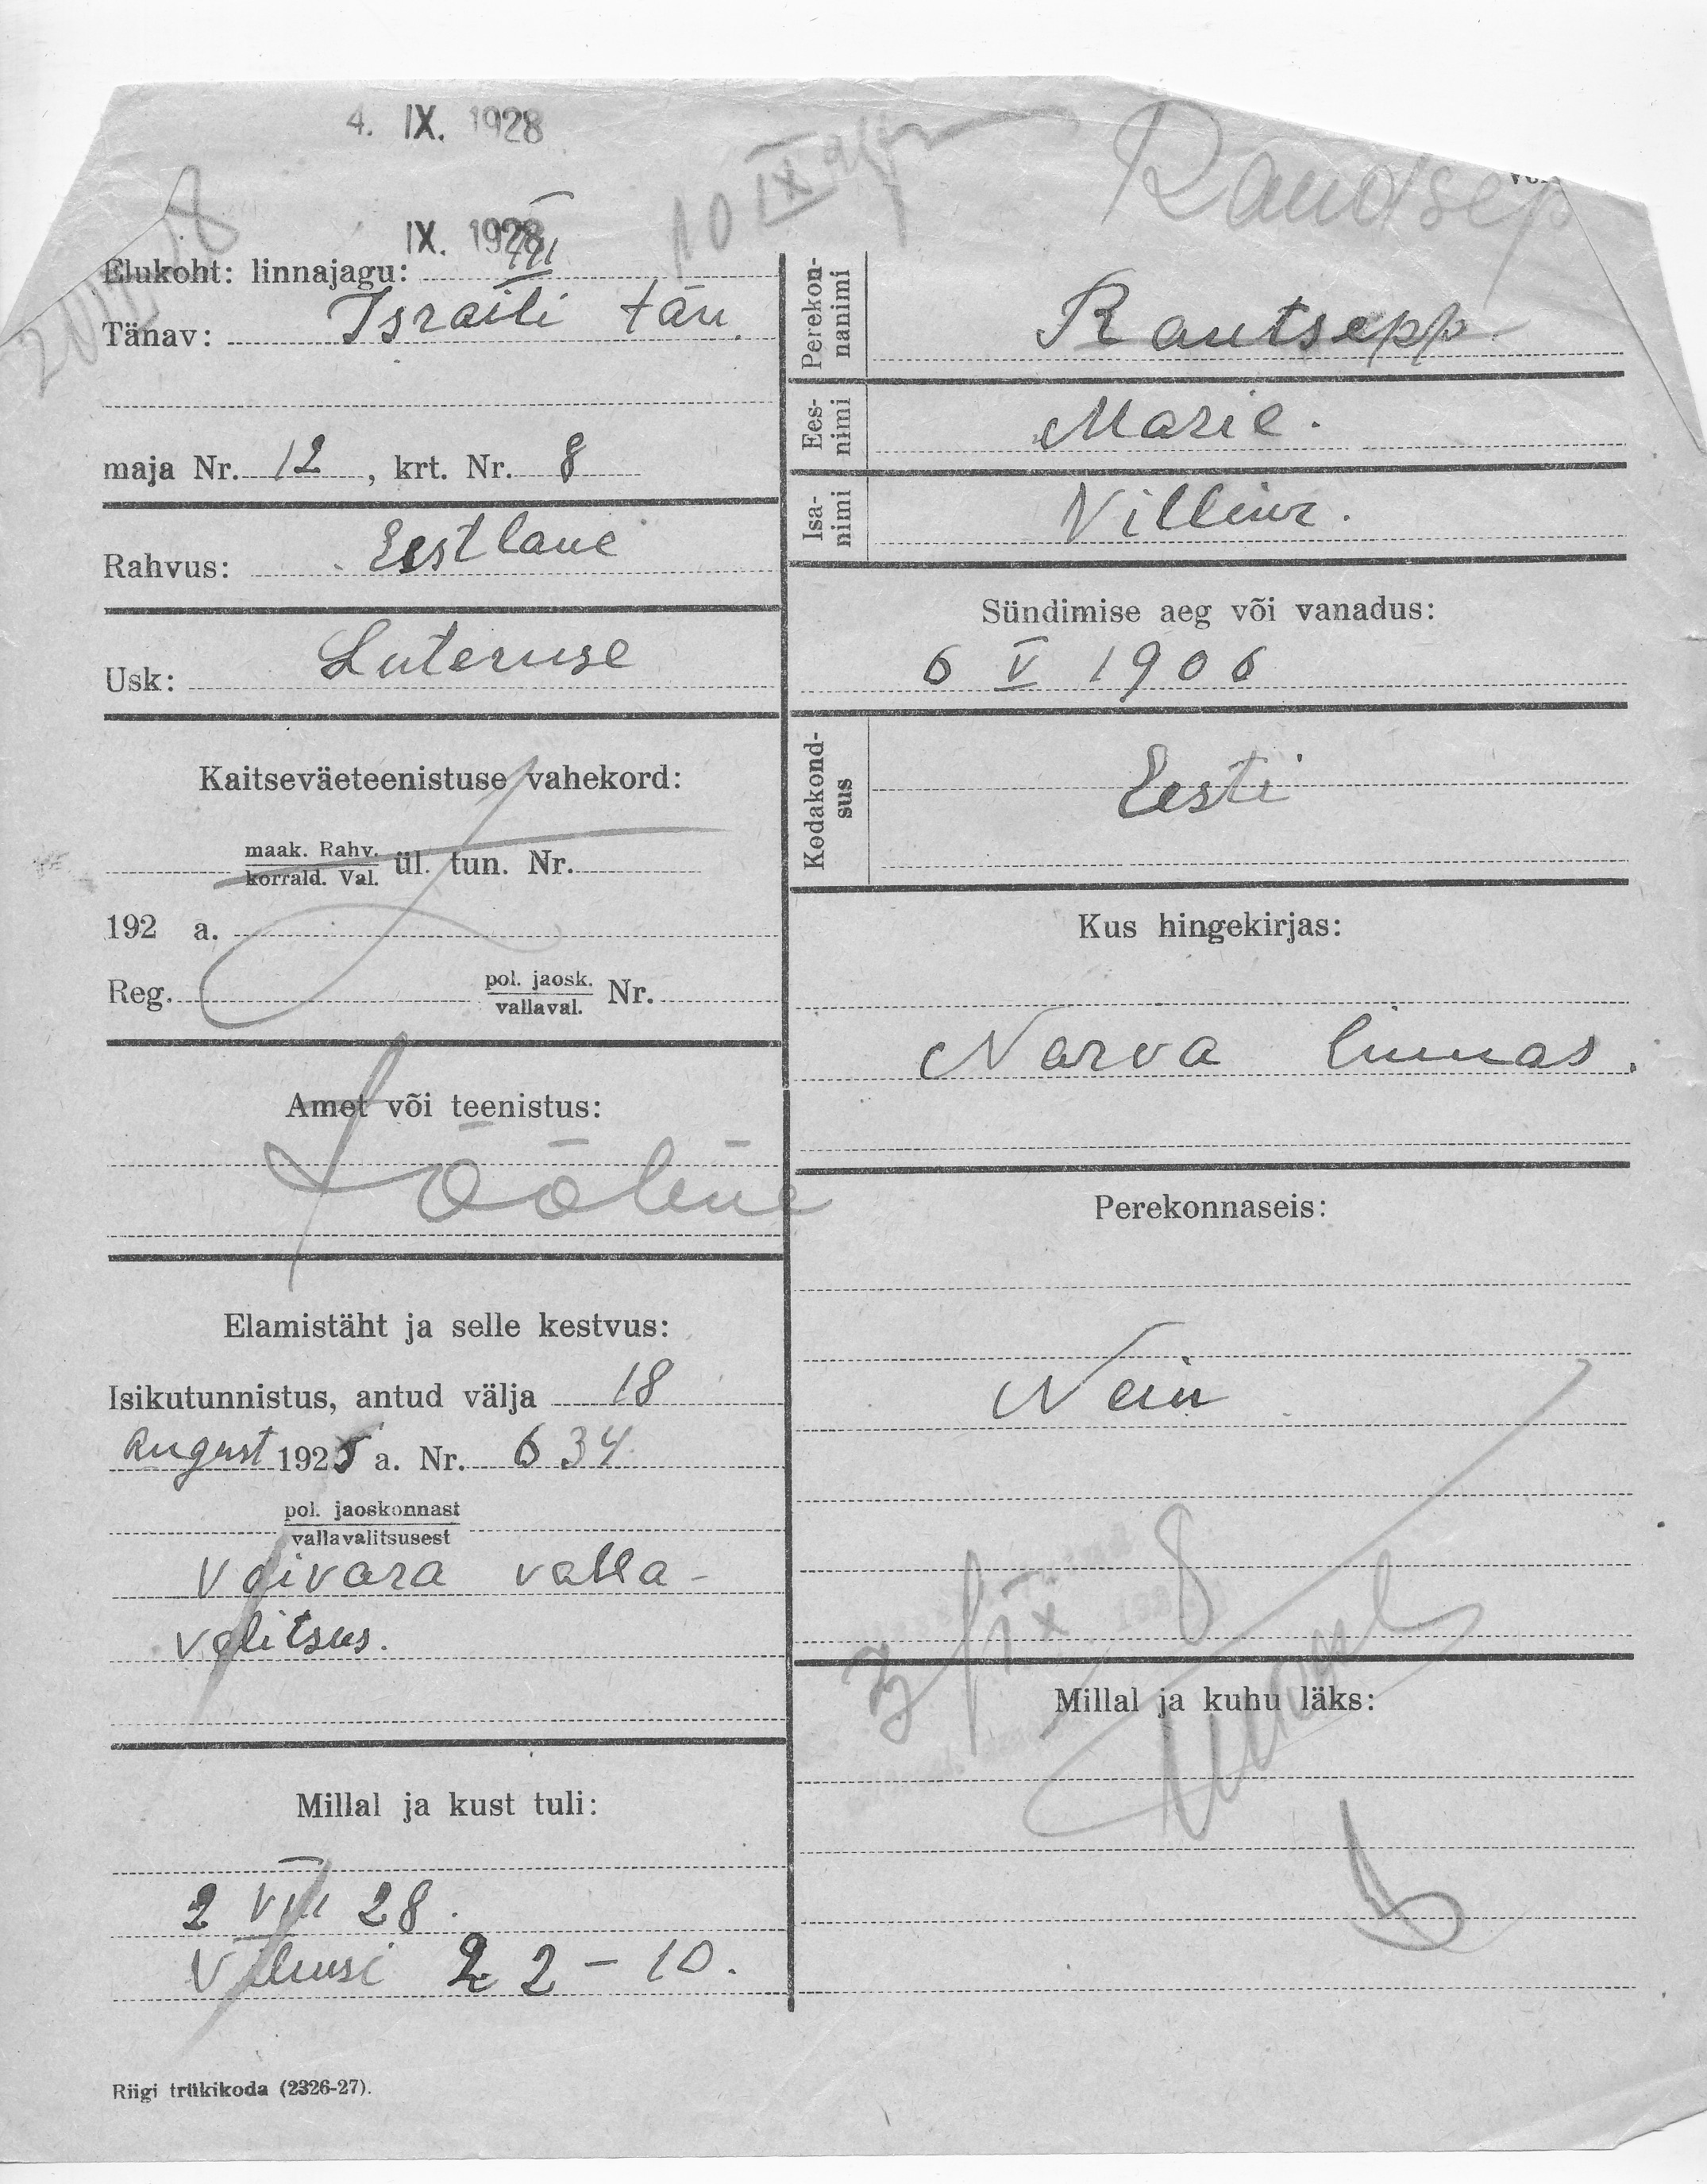 4. IX. 1928
IX. 1928
10 IX
Raudsep
Elukoht: linnajagu: III
Tänav: Israili tän.
maja Nr. 12, krt. Nr. 8
Rahvus: Eestlane
Usk: Luteruse
Kaitseväeteenistuse vahekord:
maak. Rahv.
korrald. Val. ül. tun. Nr.
192 a.
Reg. pol. jaosk.
vallaval. Nr.
Amet või teenistus:
Tööline
Elamistäht ja selle kestvus:
Isikutunnistus, antud välja 18
August 1925 a. Nr. 634
pol. jaoskonnast
vallavalitsusest
Vaivara valla-
valitsus.
Millal ja kust tuli:
2 VIII 28.
Vilmsi 22-10.
Riigi trükikoda (2326-27).
Perekon-
nanimi
Rautsepp
Ees-
nimi
Marie.
Isa-
nimi
Villem.
Sündimise aeg või vanadus:
6 V 1906
Kodakond-
sus
Eesti
Kus hingekirjas:
Narva linnas.
Perekonnaseis:
Nein
3/IX 8
Millal ja kuhu läks: